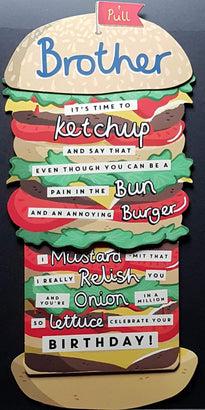 Pull
Brother
IT'S TIME TO
ketchup
AND SAY THAT
EVEN THOUGH YOU CAN BE A
PAIN IN THE Bun
AND AN ANNOYING Burger
I Mustard -MIT THAT
I REALLY Relish YOU
AND YOU'RE Onion IN A MILLION
SO lettuce CELEBRATE YOUR
BIRTHDAY!